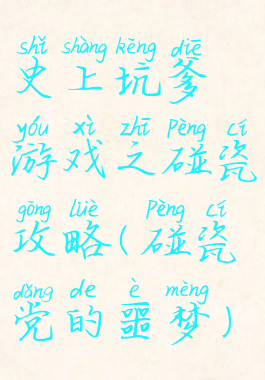 shǐ shàng kēng diē
史上坑爹
yóu xì zhī Pèng cí
游戏之碰瓷
gōng lüè Pèng cí
攻略(碰瓷
dǎng de è mèng
党的噩梦)